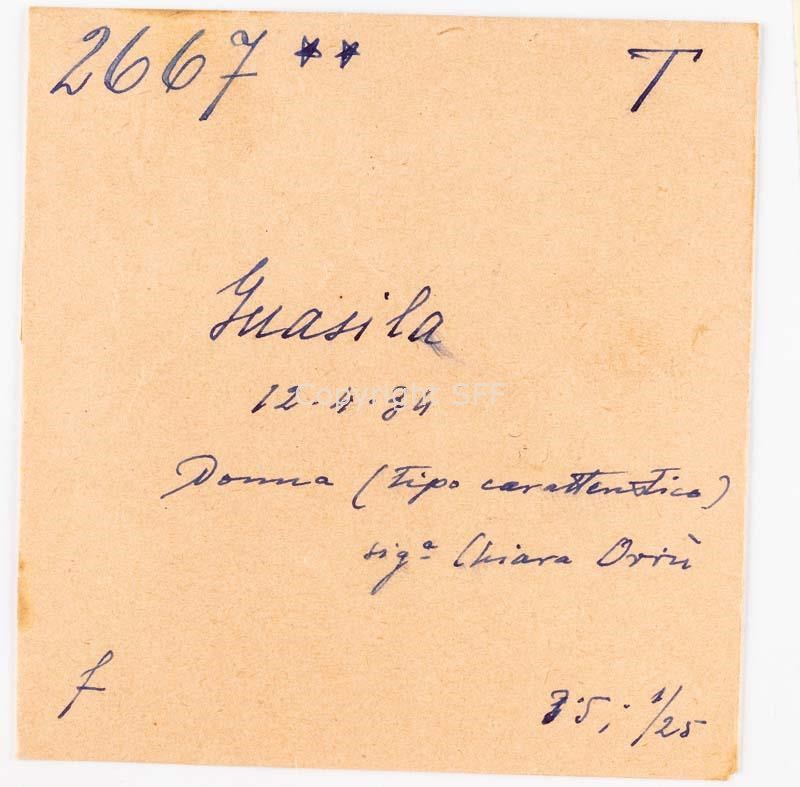 2667 ** T
Guasila
12.4.34
Copyright SFF
Donna (tipo caratteristico)
sigª Chiara Orrù
f 3.5; 1/25